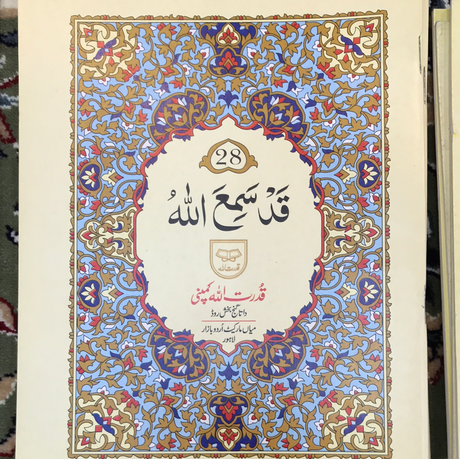 28
قَدْ سَمِعَ اللّٰهُ
قدرت اللہ
قُدرت اللہ کمپنی
داتا گنج بخش روڈ
میاں مارکیٹ اُردو بازار
لاہور